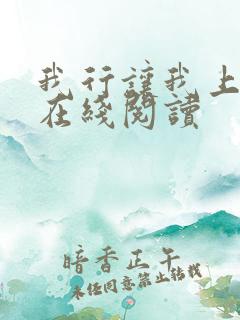 我行讓我上
在綫閱讀
暗香正午
未经同意禁止转载